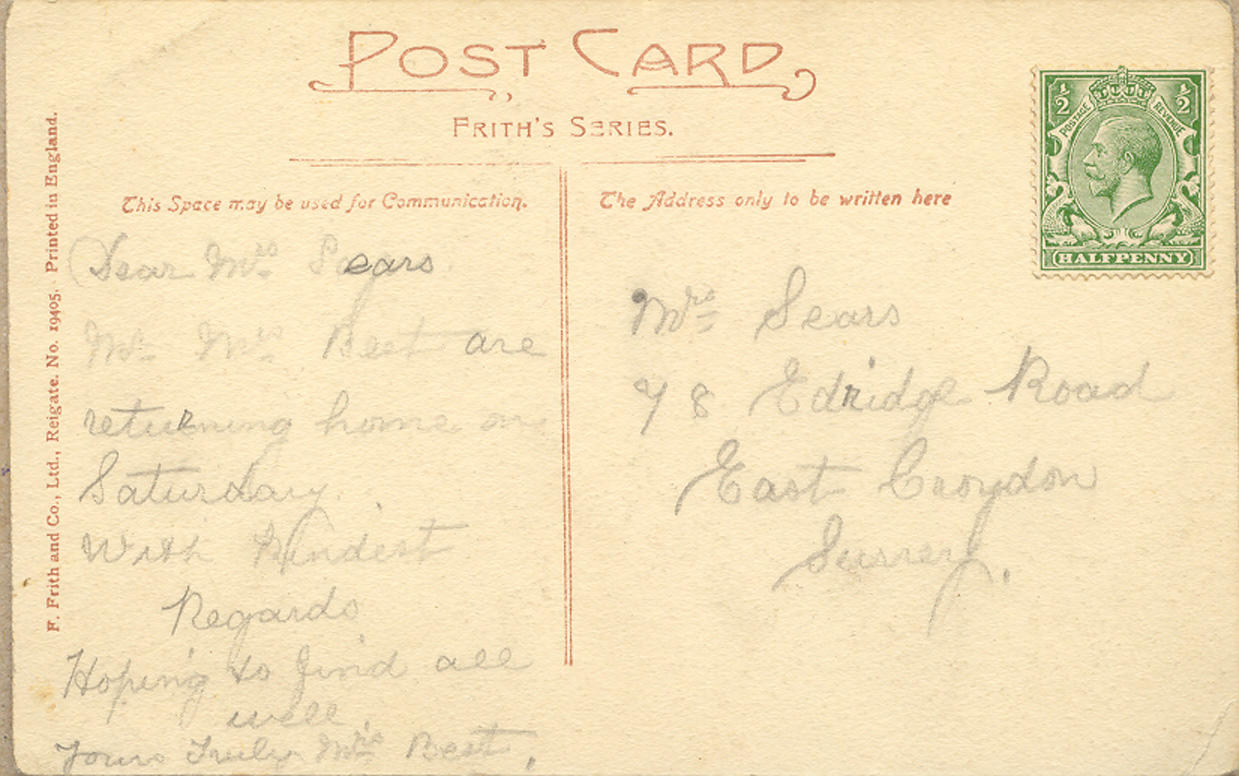 POST CARD
FRITH'S SERIES.
This Space may be used for Communication.
The Address only to be written here
F. Frith and Co., Ltd., Reigate. No. 19405. Printed in England.
Dear Mrs Sears
Mr Mrs Best are
returning home on
Saturday.
With Kindest
Regards
Hoping to find all
well.
Yours Truly Mrs Best.
Mrs Sears
78 Edridge Road
East Croydon
Surrey.
½ ½
POSTAGE REVENUE
HALFPENNY